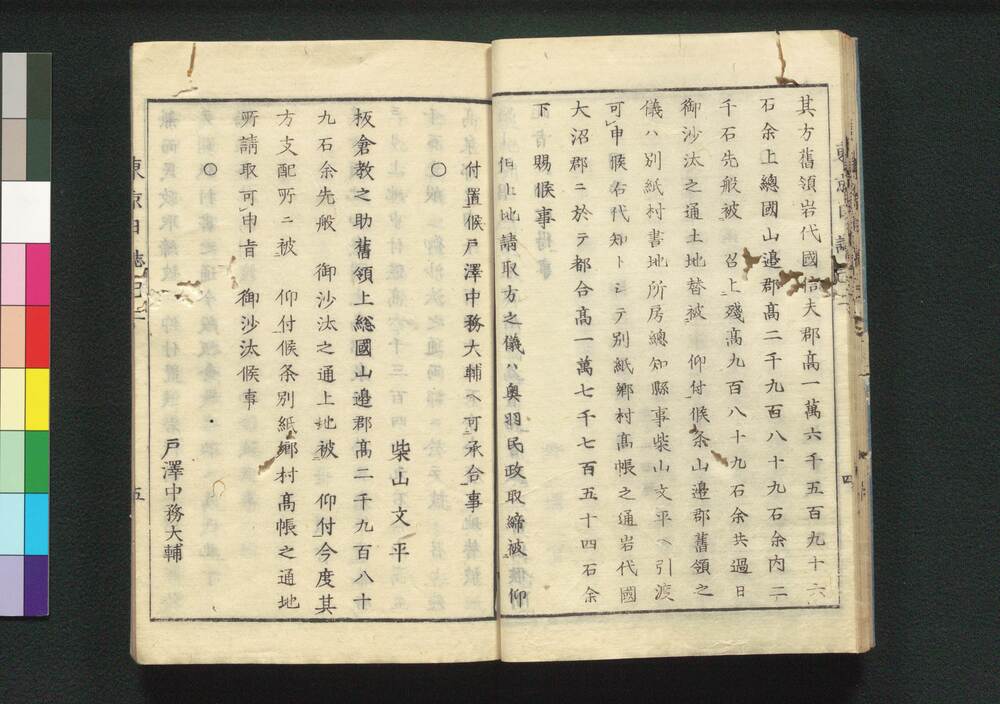 其方舊領岩代國信夫郡髙一萬六千五百九十六
石余上總國山邉郡髙二千九百八十九石余内二
千石先般被　召上殘髙九百八十九石余共過日
御沙汰之通土地替被　仰付候条山邉郡舊領之
儀ハ別紙村書地所房總知縣事柴山文平ヘ引渡
可申候右代知トシテ別紙郷村髙帳之通岩代國
大沼郡ニ於テ都合髙一萬七千七百五十四石余
下賜候事
但上地請取方之儀ハ奥羽民政取締被仰
付置候戸澤中務大輔ヘ可承合事
○
柴山文平
板倉教之助舊領上総國山邉郡髙二千九百八十
九石余先般　御沙汰之通上地被　仰付今度其
方支配所ニ被　仰付候条別紙郷村髙帳之通地
所請取可申旨　御沙汰候事
○
戸澤中務大輔
東京日誌
四
東京日誌
五